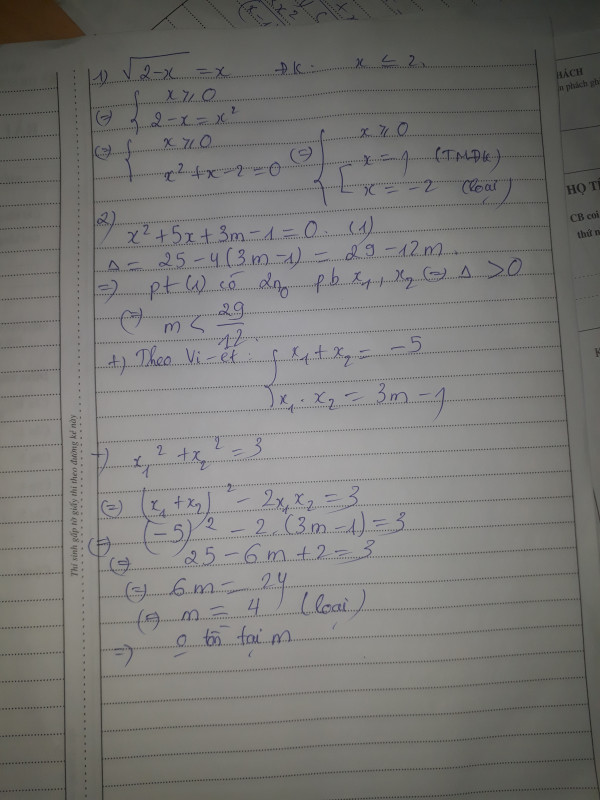 1) √(2-x) = x ĐK: x ≤ 2.
(=) { x ≥ 0
2-x = x²
(=) { x ≥ 0
x² + x - 2 = 0
(=) { x ≥ 0
[ x = 1 (TMĐK)
x = -2 (loại)
2)
x² + 5x + 3m - 1 = 0. (1)
Δ = 25 - 4(3m-1) = 29 - 12m.
=) pt (1) có 2n₀ pb x₁, x₂ (=) Δ > 0
(=) m < 29/12.
+) Theo Vi-ét: { x₁ + x₂ = -5
x₁ . x₂ = 3m - 1
+) x₁² + x₂² = 3
(=) (x₁ + x₂)² - 2x₁x₂ = 3
(=) (-5)² - 2.(3m-1) = 3
(=) 25 - 6m + 2 = 3
(=) 6m = 24
(=) m = 4 (loại)
=) o tồn tại m
Thí sinh gấp tờ giấy thi theo đường kẻ này
HÁCH
HỌ TÊ
CB coi
thứ n